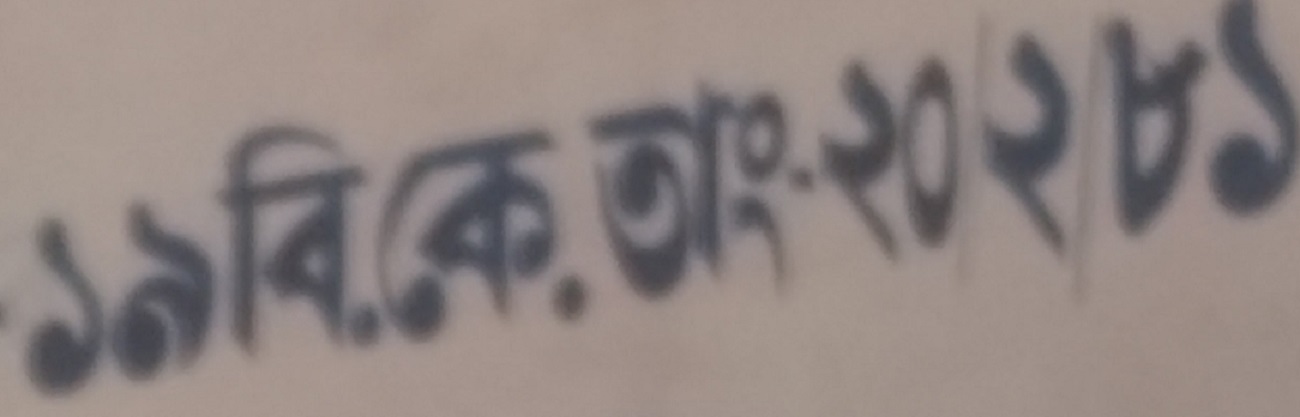 ১৯ বি.কে.তাং.২০|২|৮১